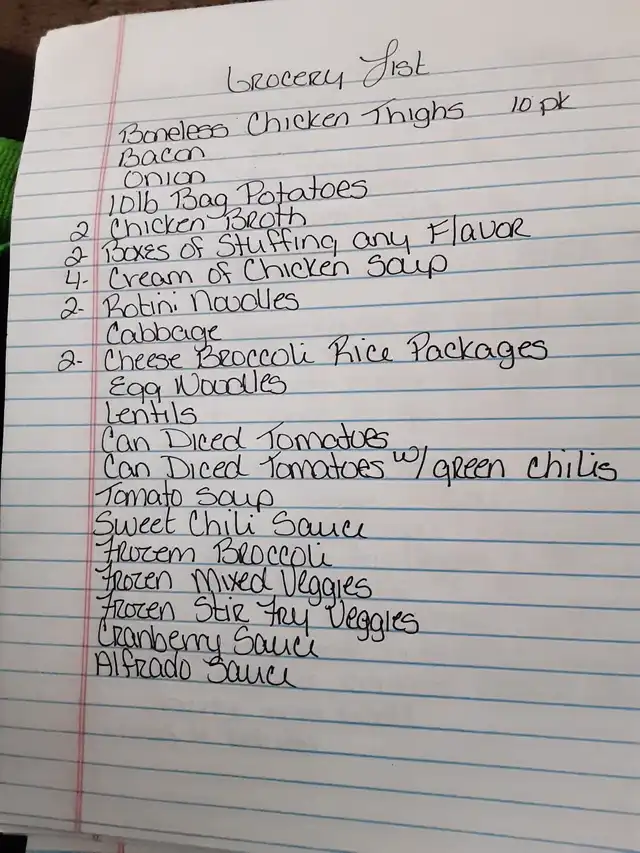 Grocery List
Boneless Chicken Thighs 10 pk
Bacon
Onion
10lb Bag Potatoes
2 Chicken Broth
2- Boxes of Stuffing any Flavor
4- Cream of Chicken Soup
2- Rotini Noodles
Cabbage
2- Cheese Broccoli Rice Packages
Egg Noodles
Lentils
Can Diced Tomatoes
Can Diced Tomatoes w/ green chilis
Tomato Soup
Sweet Chili Sauce
Frozem Broccoli
Frozen Mixed Veggies
Frozen Stir Fry Veggies
Cranberry Sauce
Alfrado Sauce